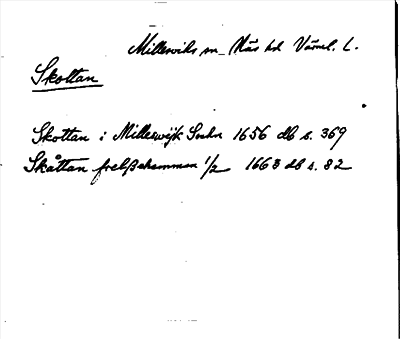 Millesviks sn. Näs hd Värml. L.
Skottan
Skottan i Milleswijk Sochn 1656 db s. 369
Skåttan frelßehemman 1/2 1663 db s. 82